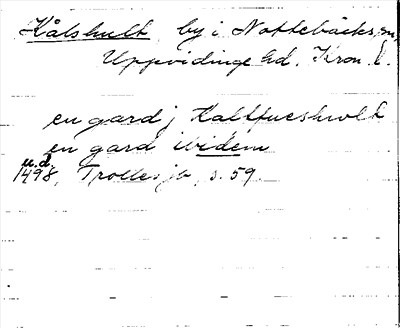 Kålshult, by i Nottebäcks sn,
Uppvidinge hd. Kron. l.
en gard j Kalffueshwlt
en gard ibidem
u.d.
1498, Trolles jb, s. 59.